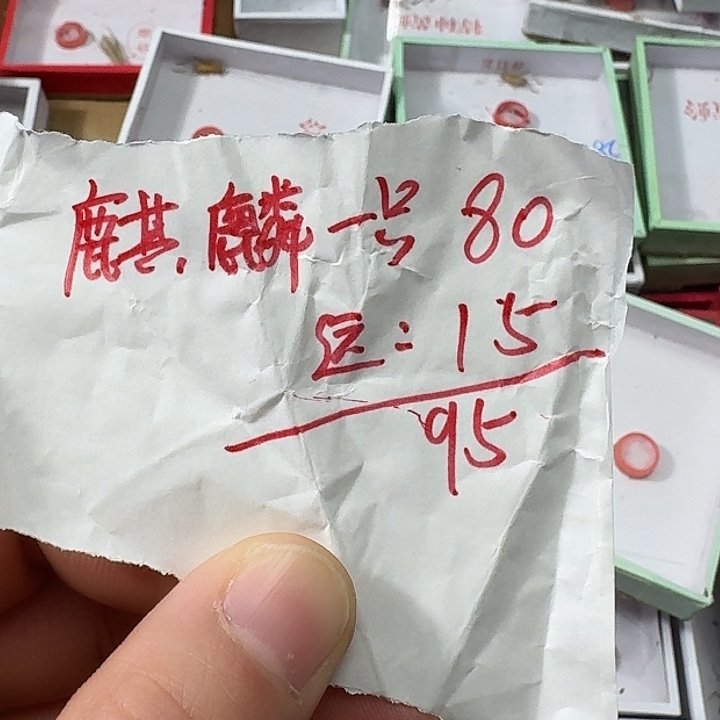 麒麟一号 80
运:15
95